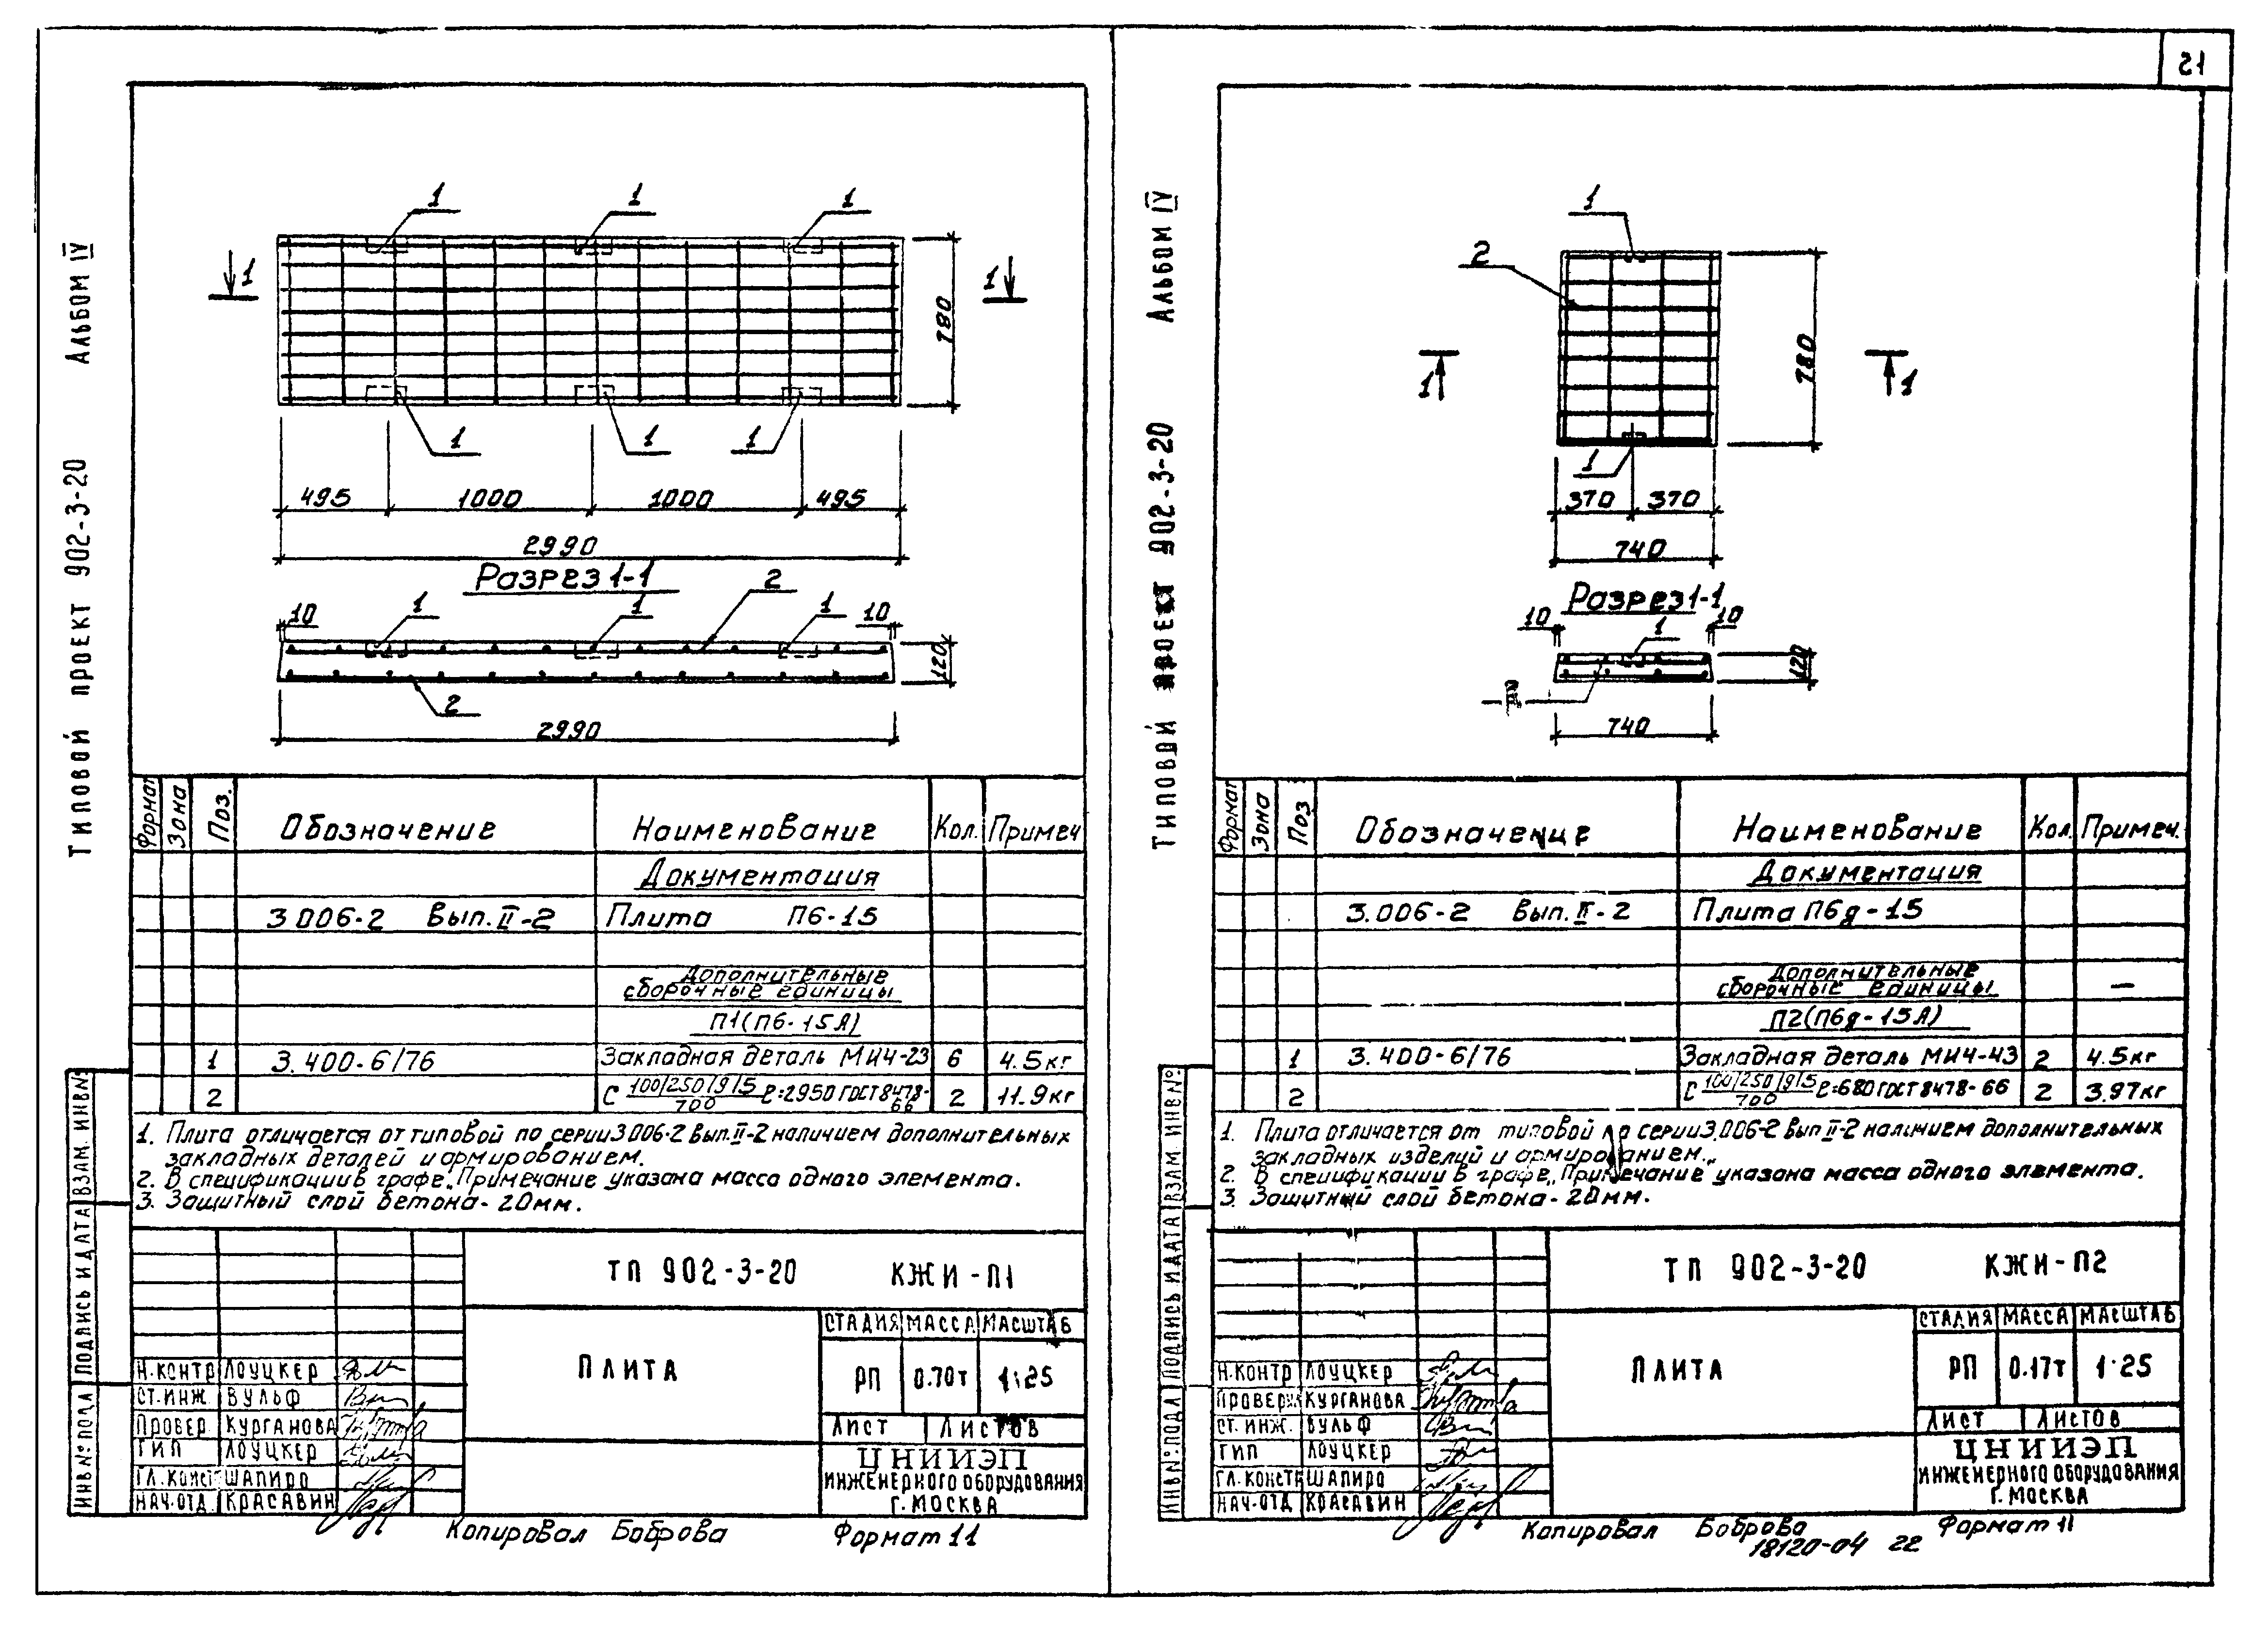 21
Типовой проект 902-3-20 Альбом IV
1 1 1
1 1
780
1 1 1
495 1000 1000 495
2990
Разрез 1-1
2
10 1 1 1 10
120
2
2990
Формат Зона Поз. Обозначение Наименование Кол. Примеч
Документация
3.006-2 Вып. II-2 Плита П6-15
Дополнительные
сборочные единицы
П1(П6-15А)
1 3.400-6/76 Закладная деталь МИ4-23 6 4.5кг
2 С 100/250/9/5 / 700 ℓ=2950 ГОСТ 8478-66 2 11.9кг
1. Плита отличается от типовой по серии 3.006-2 Вып. II-2 наличием дополнительных
закладных деталей и армированием.
2. В спецификации в графе „Примечание указана масса одного элемента.
3. Защитный слой бетона - 20мм.
ТП 902-3-20 КЖИ-П1
ПЛИТА
СТАДИЯ МАССА МАСШТАБ
РП 0.70т 1:25
Лист Листов
ЦНИИЭП
ИНЖЕНЕРНОГО ОБОРУДОВАНИЯ
Г. МОСКВА
Н.КОНТР ЛОУЦКЕР
СТ.ИНЖ. ВУЛЬФ
ПРОВЕР КУРГАНОВА
ГИП ЛОУЦКЕР
ГЛ.КОНСТ ШАПИРО
НАЧ.ОТД. КРАСАВИН
ИНВ№ПОДЛ ПОДПИСЬ И ДАТА ВЗАМ. ИНВ№
Копировал Боброва Формат 11
Типовой проект 902-3-20 Альбом IV
1
2
1 1
780
1
370 370
740
Разрез 1-1
10 1 10
120
740
Формат Зона Поз Обозначение Наименование Кол. Примеч.
Документация
3.006-2 Вып. II-2 Плита П6д-15
Дополнительные
сборочные единицы —
П2(П6д-15А)
1 3.400-6/76 Закладная деталь МИ4-43 2 4.5кг
2 С 100/250/9/5 / 700 ℓ=680 ГОСТ 8478-66 2 3.97кг
1. Плита отличается от типовой по серии 3.006-2 Вып II-2 наличием дополнительных
закладных изделий и армированием.
2. В спецификации в графе „Примечание" указана масса одного элемента.
3. Защитный слой бетона - 20мм.
ТП 902-3-20 КЖИ-П2
ПЛИТА
СТАДИЯ МАССА МАСШТАБ
РП 0.17т 1:25
Лист Листов
ЦНИИЭП
ИНЖЕНЕРНОГО ОБОРУДОВАНИЯ
Г. МОСКВА
Н.КОНТР ЛОУЦКЕР
ПРОВЕРИЛ КУРГАНОВА
СТ. ИНЖ. ВУЛЬФ
ГИП ЛОУЦКЕР
ГЛ.КОНСТР ШАПИРО
НАЧ.ОТД КРАСАВИН
ИНВ№ПОДЛ ПОДПИСЬ И ДАТА ВЗАМ ИНВ№
Копировал Боброва Формат 11
18120-04 22